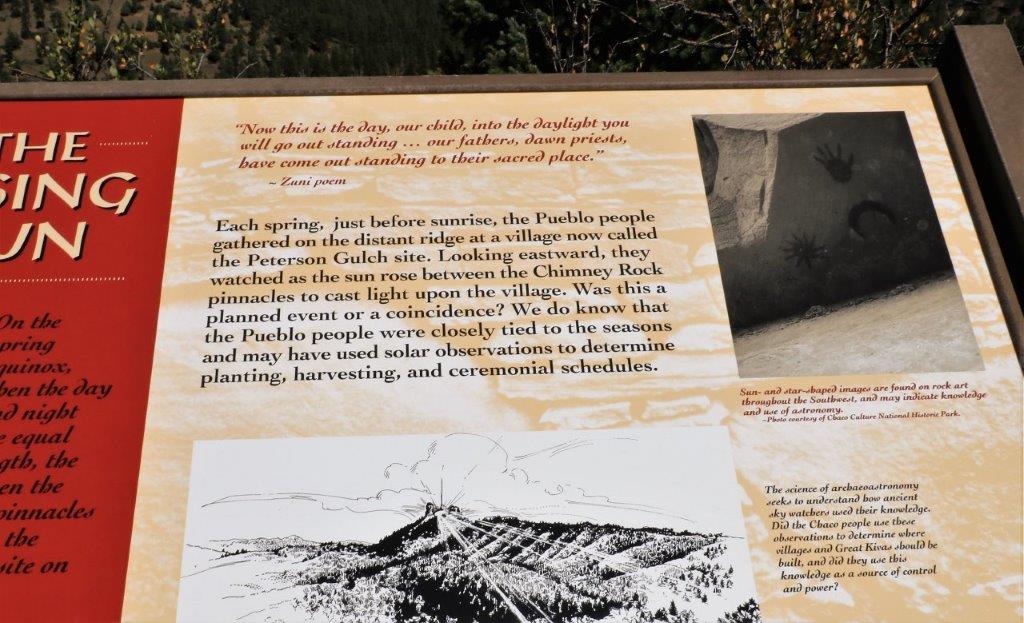 THE
SING
UN
On the
pring
quinox,
hen the day
nd night
e equal
gth, the
en the
pinnacles
the
site on
"Now this is the day, our child, into the daylight you
will go out standing ... our fathers, dawn priests,
have come out standing to their sacred place."
~ Zuni poem
Each spring, just before sunrise, the Pueblo people
gathered on the distant ridge at a village now called
the Peterson Gulch site. Looking eastward, they
watched as the sun rose between the Chimney Rock
pinnacles to cast light upon the village. Was this a
planned event or a coincidence? We do know that
the Pueblo people were closely tied to the seasons
and may have used solar observations to determine
planting, harvesting, and ceremonial schedules.
Sun- and star-shaped images are found on rock art
throughout the Southwest, and may indicate knowledge
and use of astronomy.
~Photo courtesy of Chaco Culture National Historic Park.
The science of archaeoastronomy
seeks to understand how ancient
sky watchers used their knowledge.
Did the Chaco people use these
observations to determine where
villages and Great Kivas should be
built, and did they use this
knowledge as a source of control
and power?